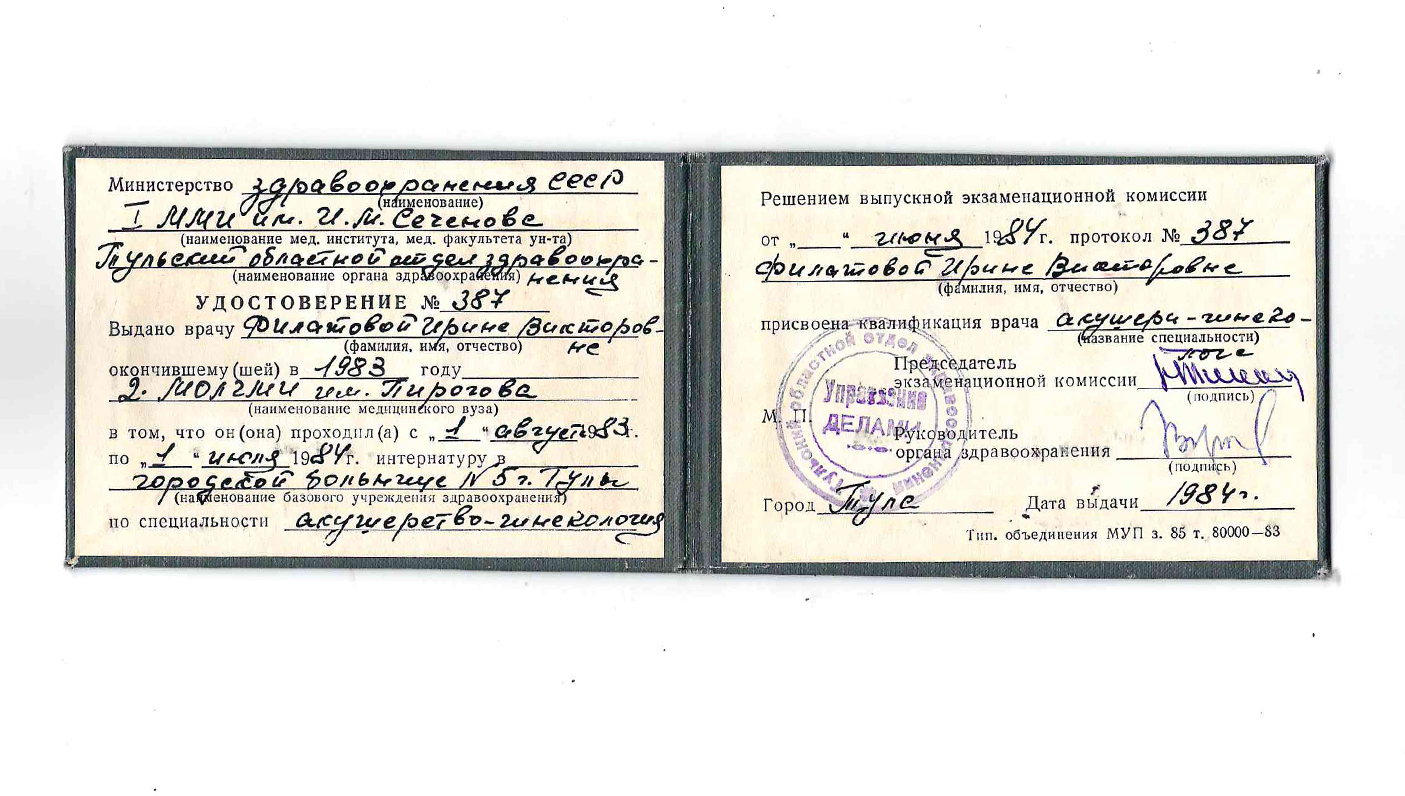 Министерство здравоохранения СССР
(наименование)
I ММИ им. И.М. Сеченова
(наименование мед. института, мед. факультета ун-та)
Тульский областной отдел здравоохра-
(наименование органа здравоохранения) нения
УДОСТОВЕРЕНИЕ № 387
Выдано врачу Филатовой Ирине Викторов-
(фамилия, имя, отчество) не
окончившему (шей) в 1983 году
2. МОЛГМИ им. Пирогова
(наименование медицинского вуза)
в том, что он (она) проходил (а) с „1“ август 1983г.
по „1“ июля 1984г. интернатуру в
городской больнице N 5 г. Тулы
(наименование базового учреждения здравоохранения)
по специальности акушерство-гинекология
Решением выпускной экзаменационной комиссии
от „ “ июня 1984г. протокол № 387
Филатовой Ирине Викторовне
(фамилия, имя, отчество)
присвоена квалификация врача акушера-гинеко-
(название специальности)
лога
Председатель
экзаменационной комиссии
(подпись)
М. П.
Руководитель
органа здравоохранения
(подпись)
Город Тула Дата выдачи 1984г.
Тип. объединения МУП з. 85 т. 80000—83
Тульский областной отдел здравоохранения
Управление
ДЕЛАМИ